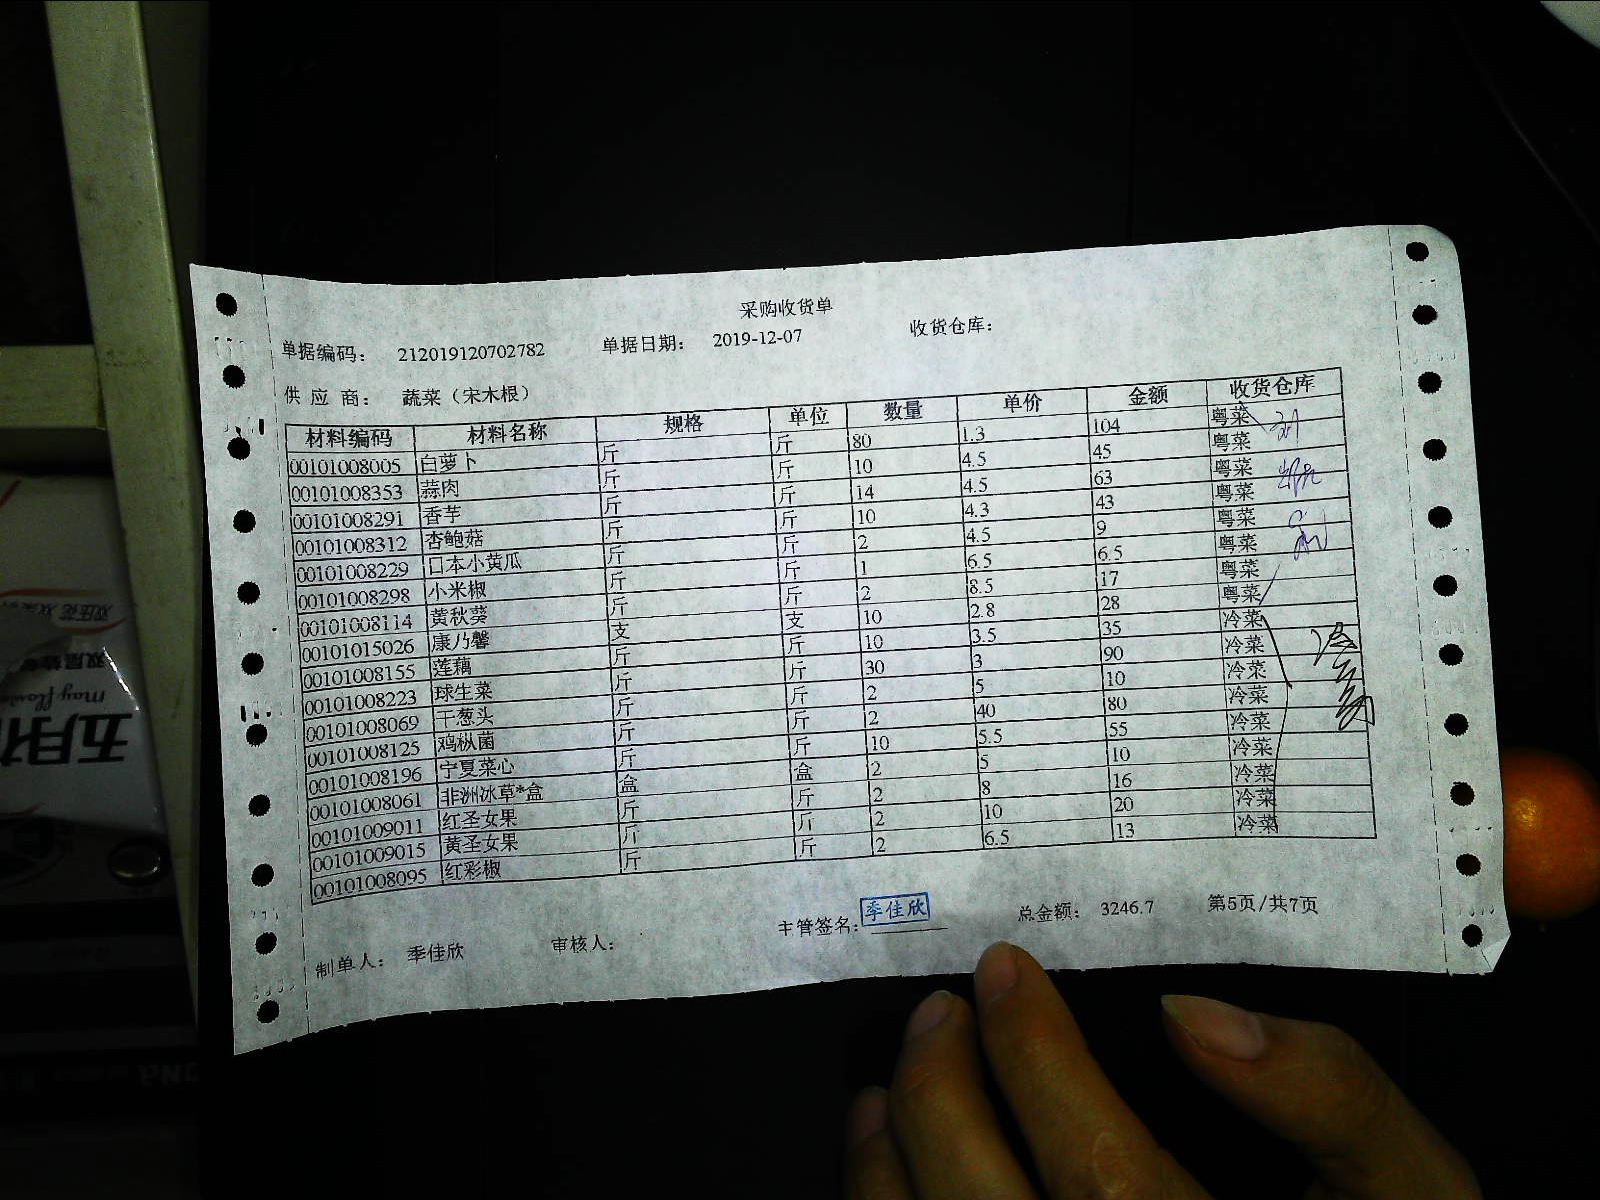 采购收货单
单据编码： 212019120702782 单据日期： 2019-12-07 收货仓库：
供 应 商： 蔬菜（宋木根）
材料编码 材料名称 规格 单位 数量 单价 金额 收货仓库
00101008005 白萝卜 斤 斤 80 1.3 104 粤菜
00101008353 蒜肉 斤 斤 10 4.5 45 粤菜
00101008291 香芋 斤 斤 14 4.5 63 粤菜
00101008312 杏鲍菇 斤 斤 10 4.3 43 粤菜
00101008229 日本小黄瓜 斤 斤 2 4.5 9 粤菜
00101008298 小米椒 斤 斤 1 6.5 6.5 粤菜
00101008114 黄秋葵 斤 斤 2 8.5 17 粤菜
00101015026 康乃馨 支 支 10 2.8 28 粤菜
00101008155 莲藕 斤 斤 10 3.5 35 冷菜
00101008223 球生菜 斤 斤 30 3 90 冷菜
00101008069 干葱头 斤 斤 2 5 10 冷菜
00101008125 鸡枞菌 斤 斤 2 40 80 冷菜
00101008196 宁夏菜心 斤 斤 10 5.5 55 冷菜
00101008061 非洲冰草*盒 盒 盒 2 5 10 冷菜
00101009011 红圣女果 斤 斤 2 8 16 冷菜
00101009015 黄圣女果 斤 斤 2 10 20 冷菜
00101008095 红彩椒 斤 斤 2 6.5 13 冷菜
制单人： 季佳欣 审核人： 主管签名： 季佳欣 总金额： 3246.7 第5页/共7页
五月花